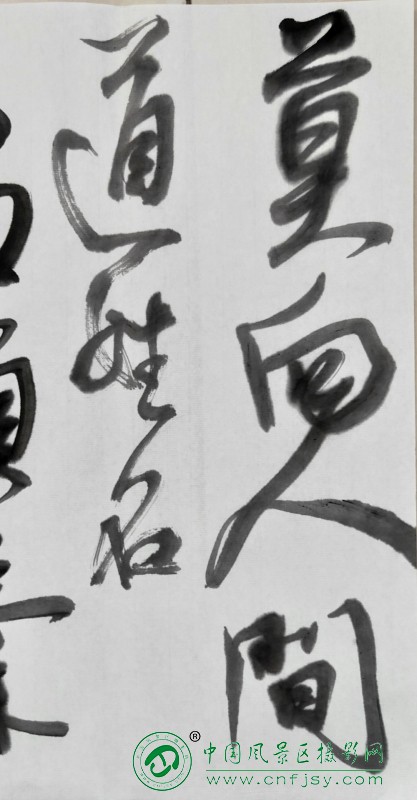 莫向人間
道姓名
®
中国风景区摄影网
www.cnfjsy.com